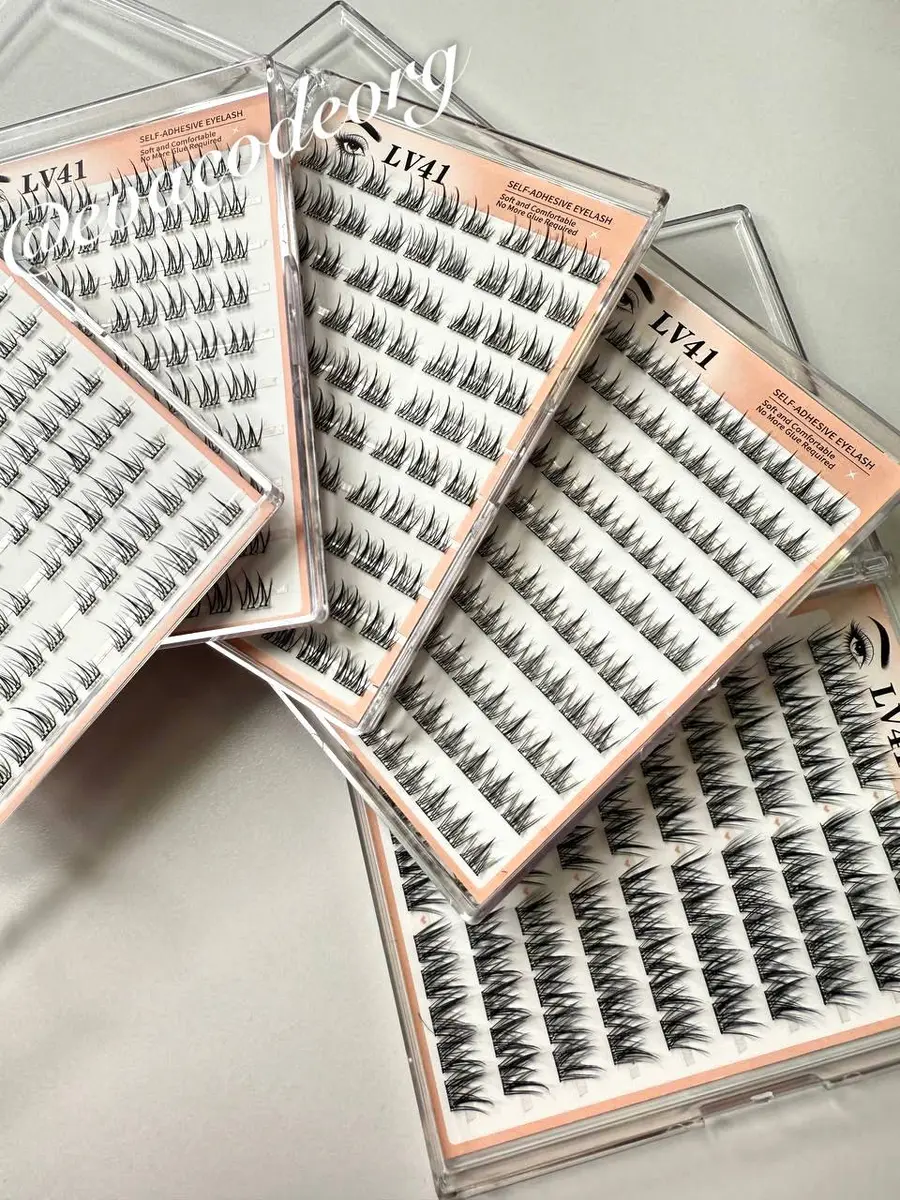 @evacodeorg
LV41
SELF-ADHESIVE EYELASH
Soft and Comfortable
No More Glue Required
LV41
SELF-ADHESIVE EYELASH
Soft and Comfortable
No More Glue Required
LV41
SELF-ADHESIVE EYELASH
Soft and Comfortable
No More Glue Required
LV41